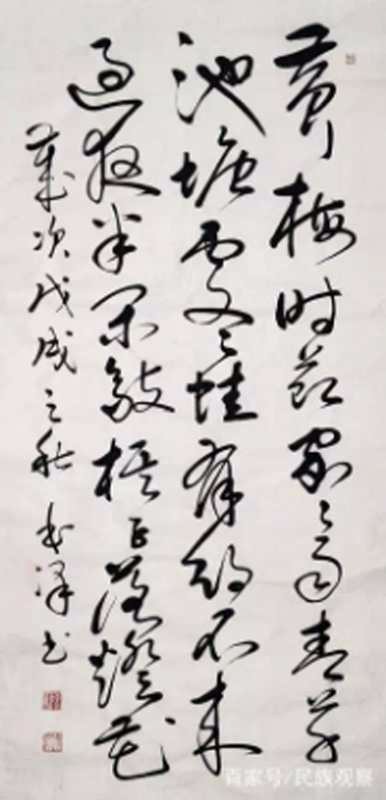 黄梅时节家々雨青草
池塘处々蛙有约不来
过夜半闲敲棋子落燈花
岁次戊戌之秋 书
百家号/民族观察